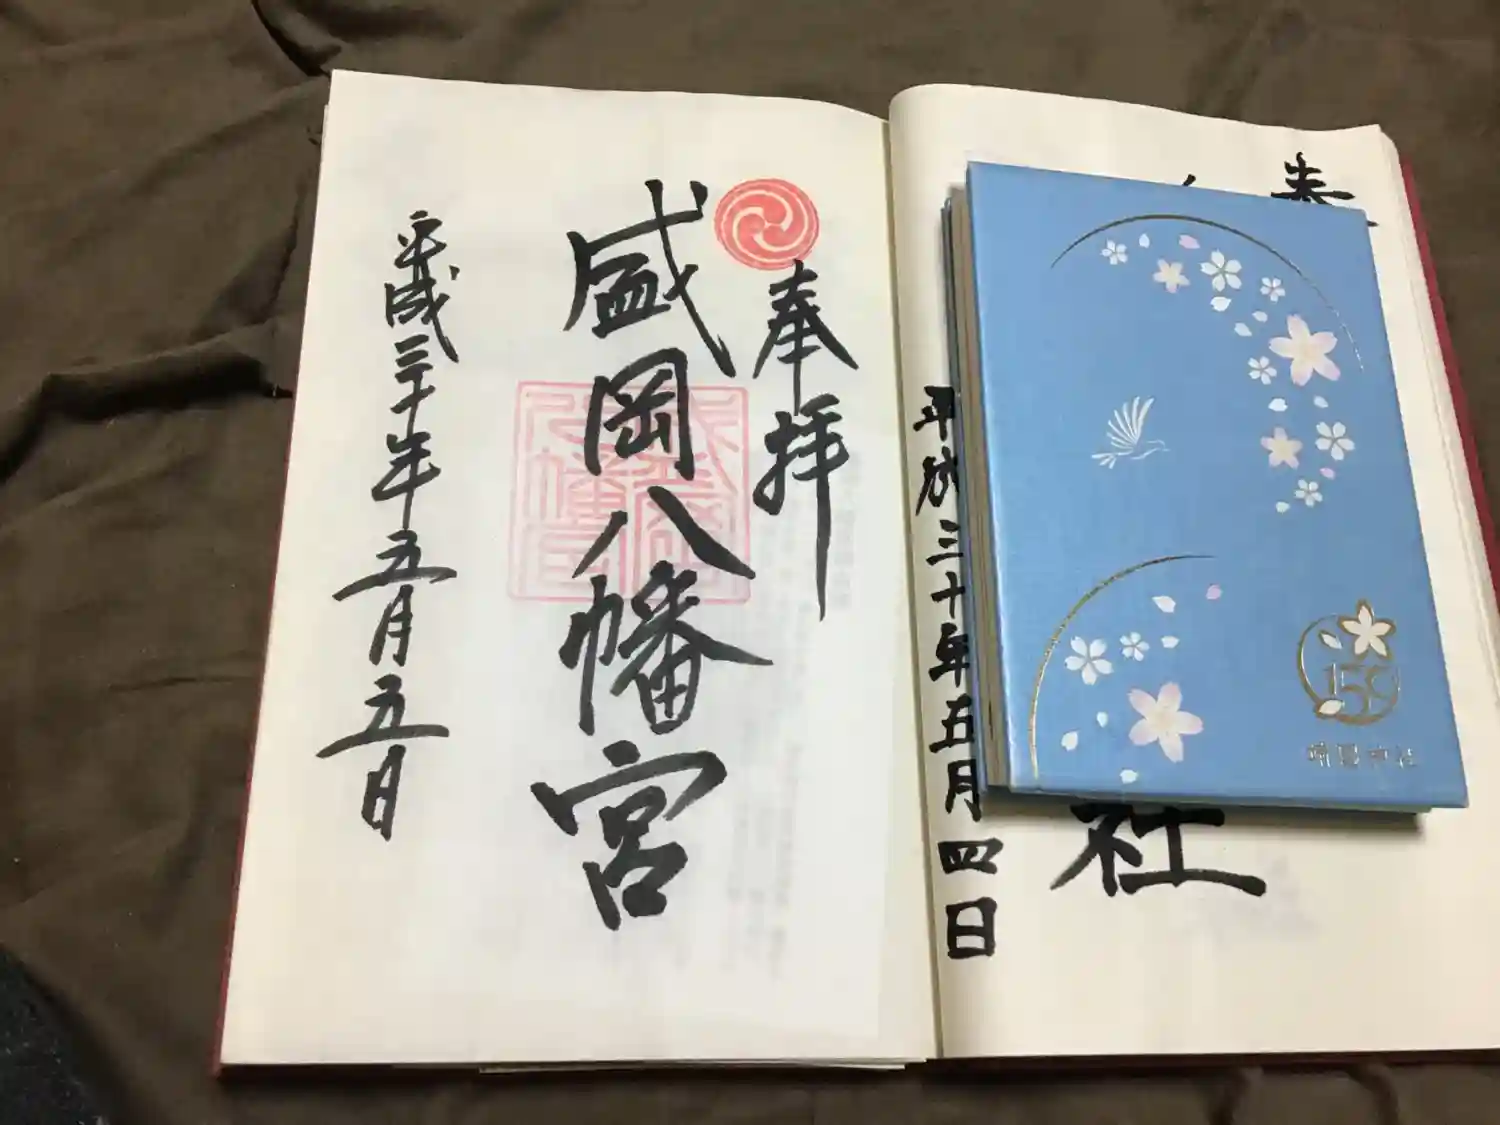 奉拝
盛岡八幡宮
平成三十年五月五日
奉
社
平成三十年五月四日
150